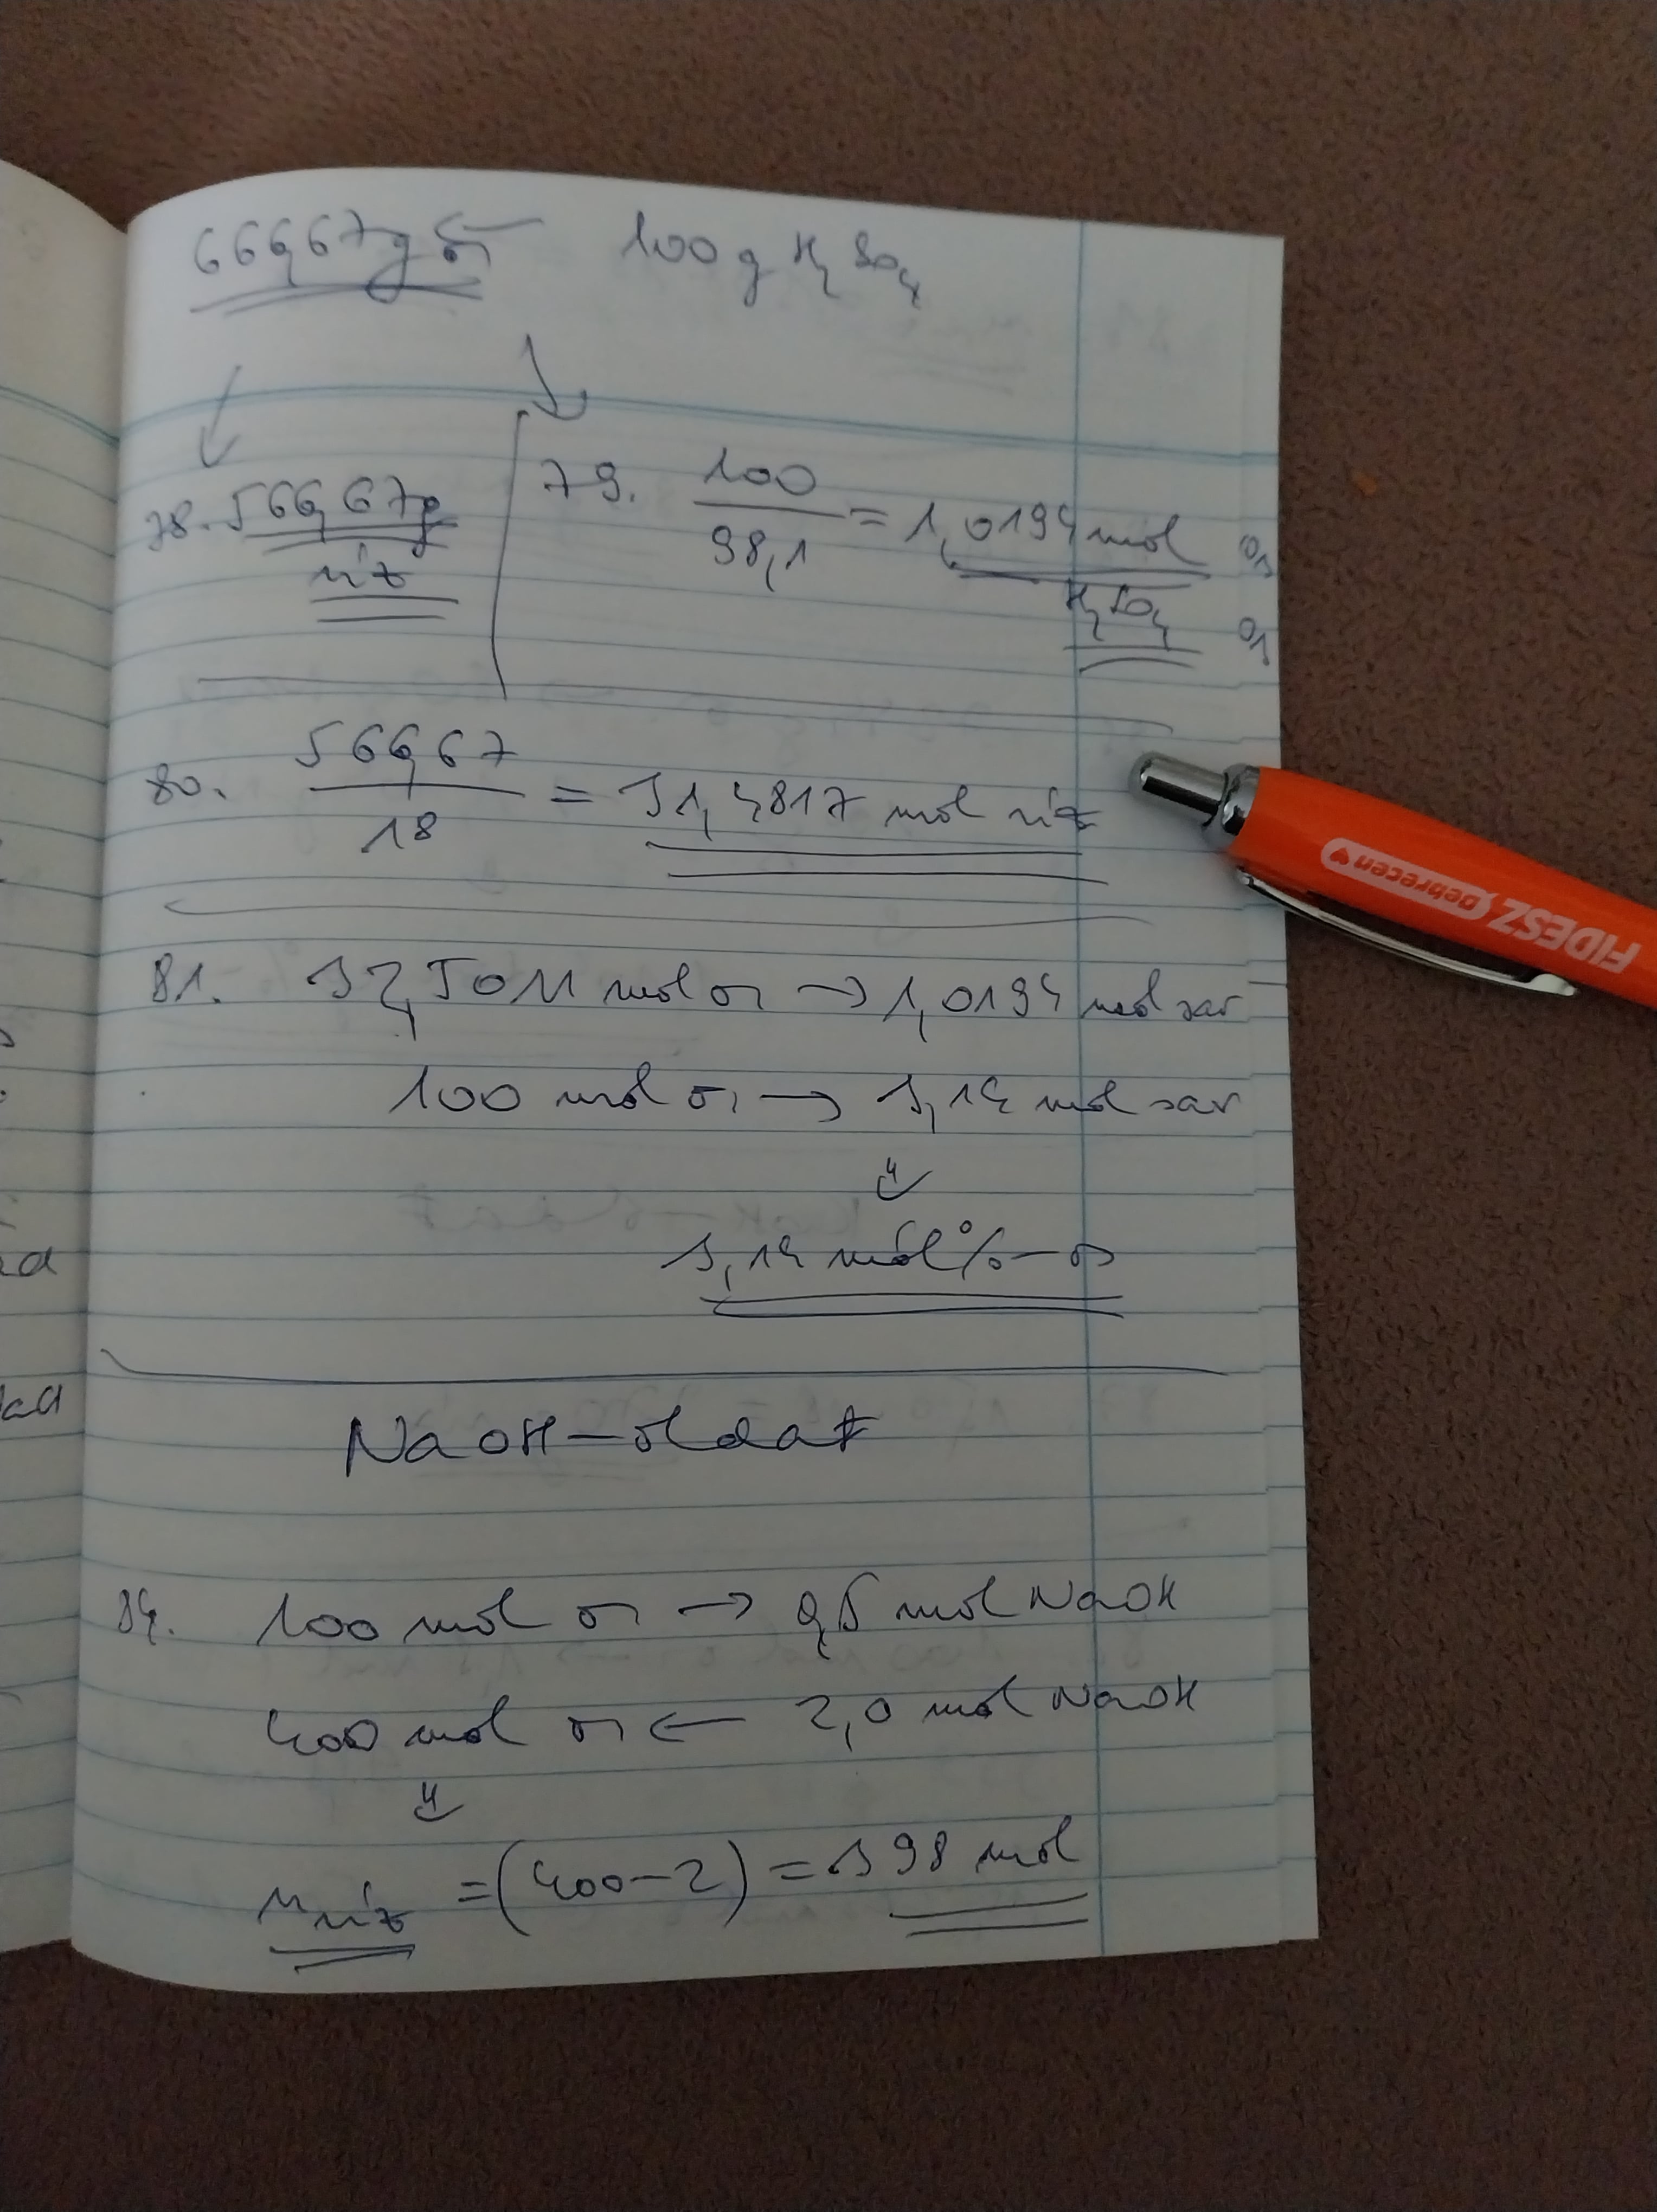 666,67 g 100 g H2SO4
78. 566,67 g víz
79. 100 / 98,1 = 1,0194 mol H2SO4
80. 566,67 / 18 = 31,4817 mol víz
81. 32,5011 mol o. → 1,0194 mol sav
100 mol o. → 3,14 mol sav
⇓
3,14 mól%-os
NaOH-oldat
84. 100 mol o. → 0,5 mol NaOH
400 mol o. ← 2,0 mol NaOH
⇓
n víz = (400-2) = 398 mol
FIDESZ Debrecen